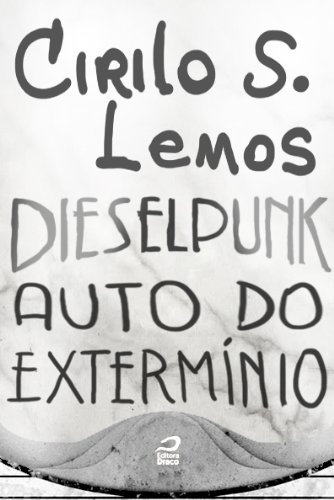 CIRILO S.
LEMOS
DIESELPUNK
AUTO DO
EXTERMÍNIO
Editora
Draco